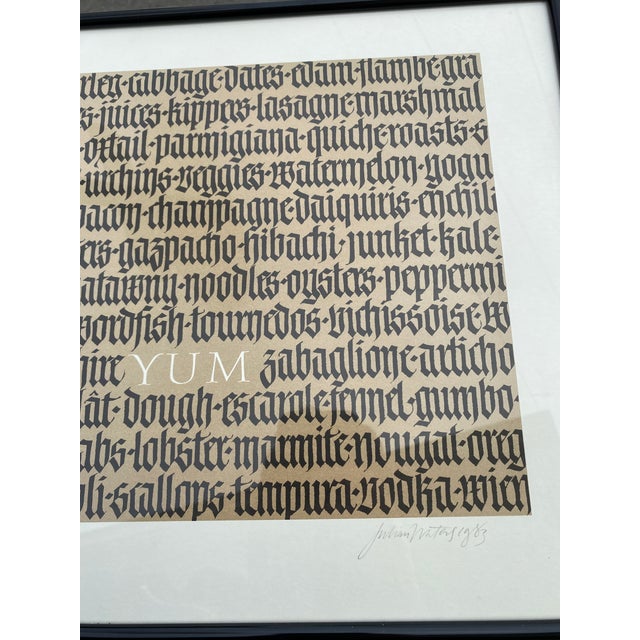 rleg·cabbage·dates·edam·flambe·gra
s·juices·kippers·lasagne·marshmal
·oxtail·parmigiana·quiche·roasts·s
·urchins·veggies·watermelon·yogu
bacon·champagne·daiquiris·enchili
ers·gazpacho·hibachi·junket·kale·
atawny·noodles·oysters·pepperni
wordfish·tournedos·vichissoise·w
hire YUM zabaglione·articho
lât·dough·escarole·fennel·gumbo·
abs·lobster·marmite·nougat·oreg
li·scallops·tempura·vodka·wien
Julian Waters 1983